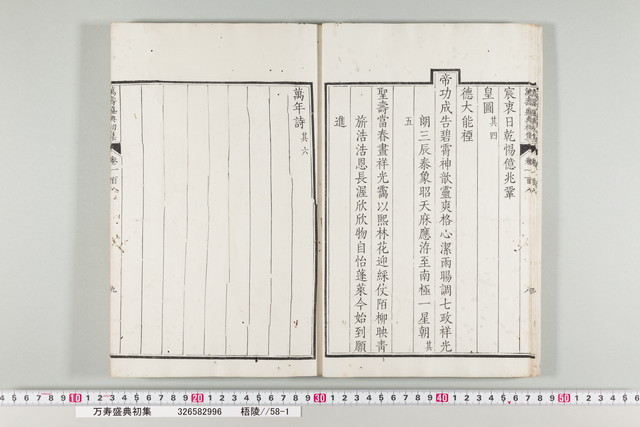 宸衷日乾惕億兆鞏
皇圖其四
德大能穪
帝功成告碧霄神歆靈爽格心潔雨暘調七政祥光
朗三辰泰象昭天庥應洊至南極一星朝其
五
聖壽當春晝祥光靄以熙林花迎綵仗陌柳映青
旂浩浩恩長渥欣欣物自怡蓬萊今始到願
進
萬年詩其六
萬壽盛典初集
卷一百八
九
10 20 30 40 50
万寿盛典初集 326582996 梧陵//58-1